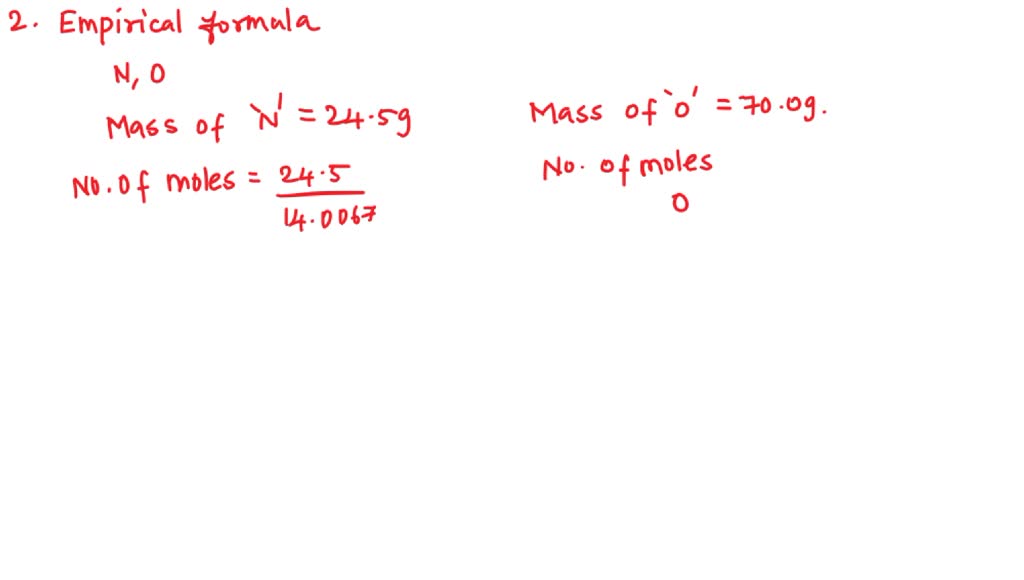 2. Empirical formula
N, O
Mass of `N' = 24.5g
No. of moles = 24.5
14.0067
Mass of `O' = 70.0g.
No. of moles
O